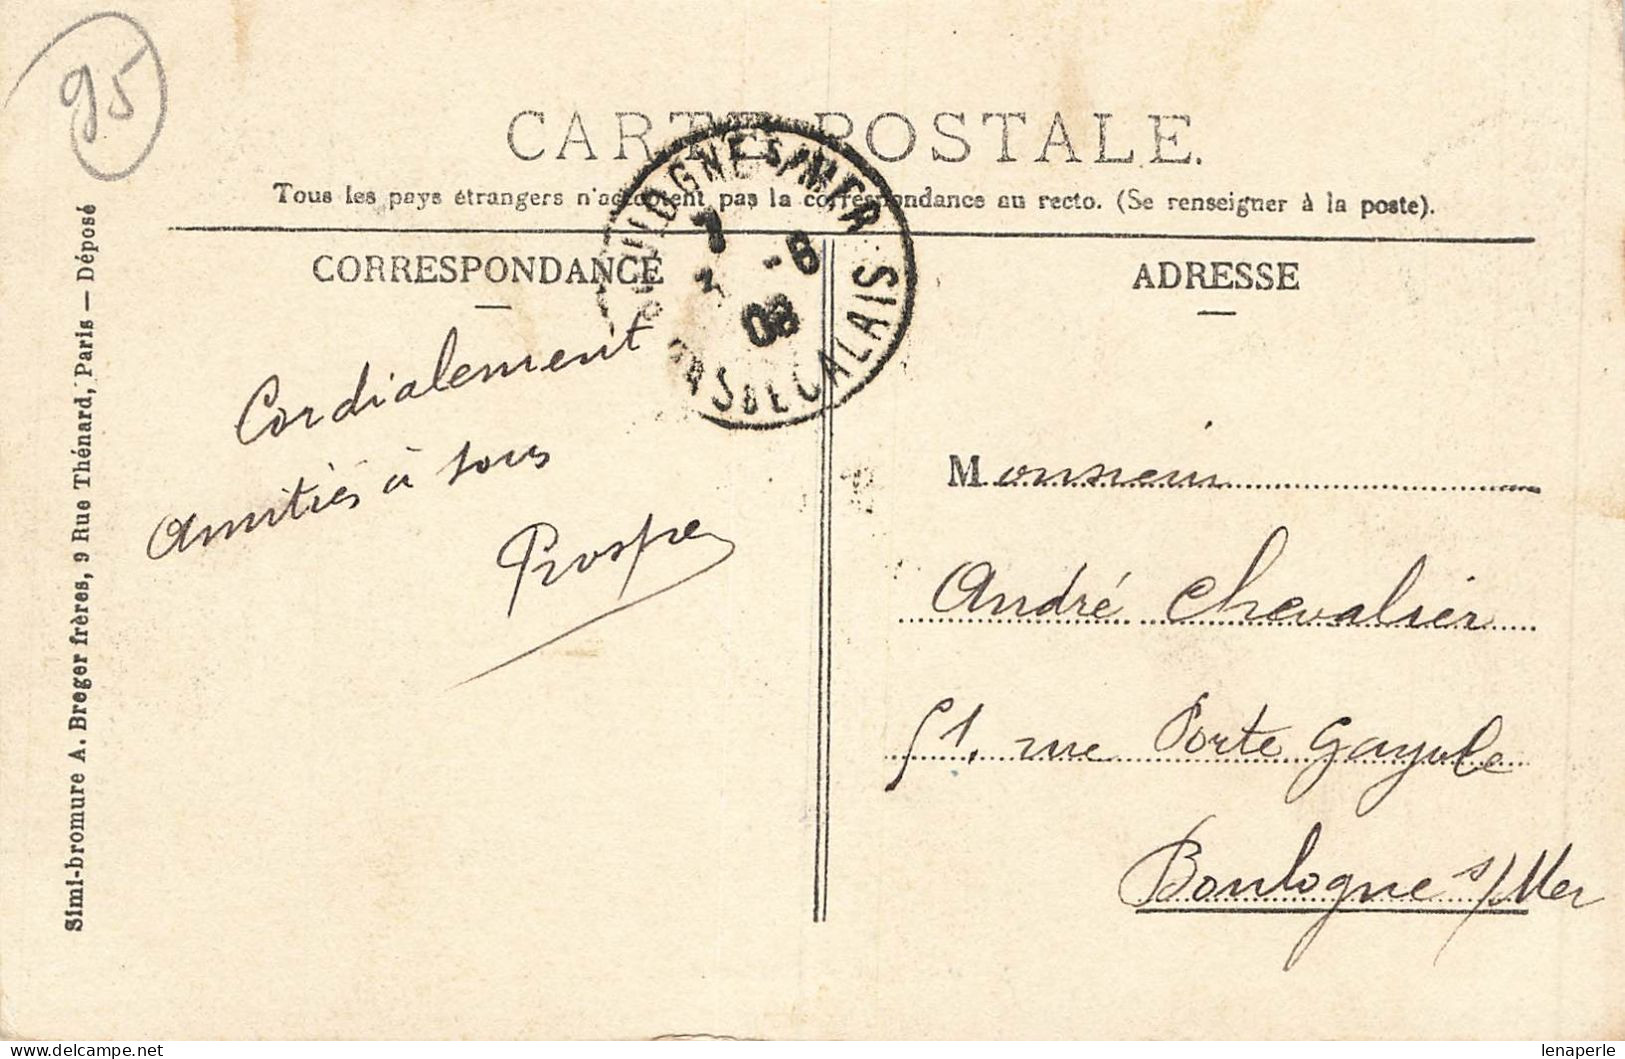 95
CARTE POSTALE.
Tous les pays étrangers n'acceptent pas la correspondance au recto. (Se renseigner à la poste).
BOULOGNE S/MER
7
08
PAS DE CALAIS
CORRESPONDANCE
Cordialement
Amitiés à tous
Prosper
ADRESSE
Monsieur
André Chevalier
51, rue Porte Gayole
Boulogne s/Mer
Simi-bromure A. Breger frères, 9 Rue Thénard, Paris — Déposé
delcampe.net
lenaperle